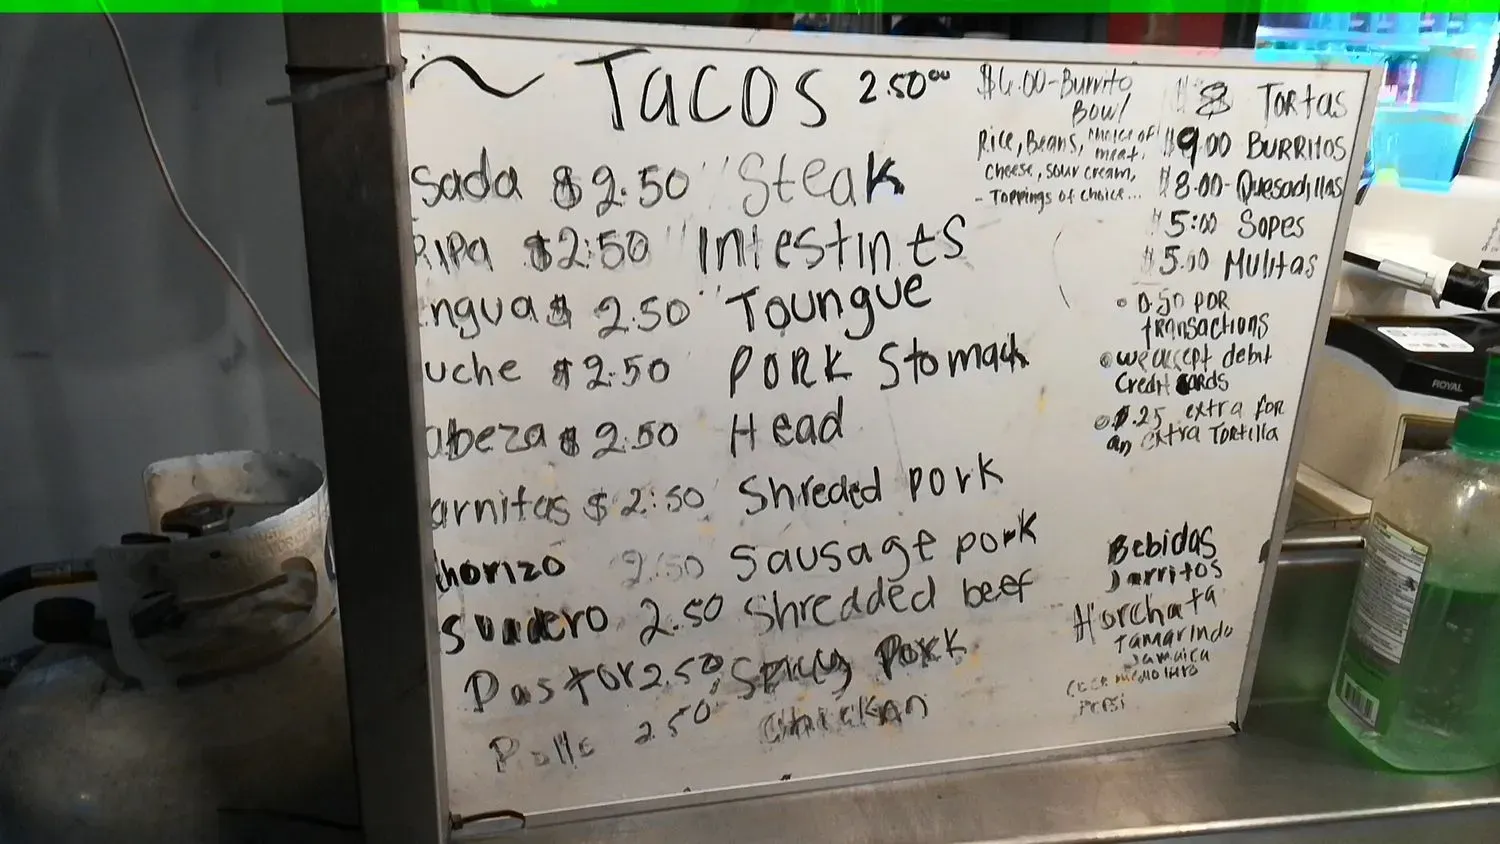 ~ Tacos 2.50
sada $2.50 " Steak
RIPA $2:50 " Intestines
ngua $ 2.50 " Toungue
uche $2.50 PORK Stomach
abeza $ 2.50 Head
arnitas $ 2:50 Shreded pork
horizo 2.50 Sausage pork
Suadero 2.50 Shredded beef
Pastor 2.50 Spicy Pork
Pollo 2.50 Chickan
Burrito
Bowl
Rice, Beans, choice of
meat,
cheese, sour cream,
- Toppings of choice...
Tortas
$9.00 BURRITOS
$8.00 - Quesadillas
$5:00 Sopes
$5.00 Mulitas
0.50 POR
transactions
we accept debit
credit cards
$.25 extra for
an extra Tortilla
Bebidas
Jarritos
Horchata
Tamarindo
Jamaica
medio litro
Pepsi
ROYAL